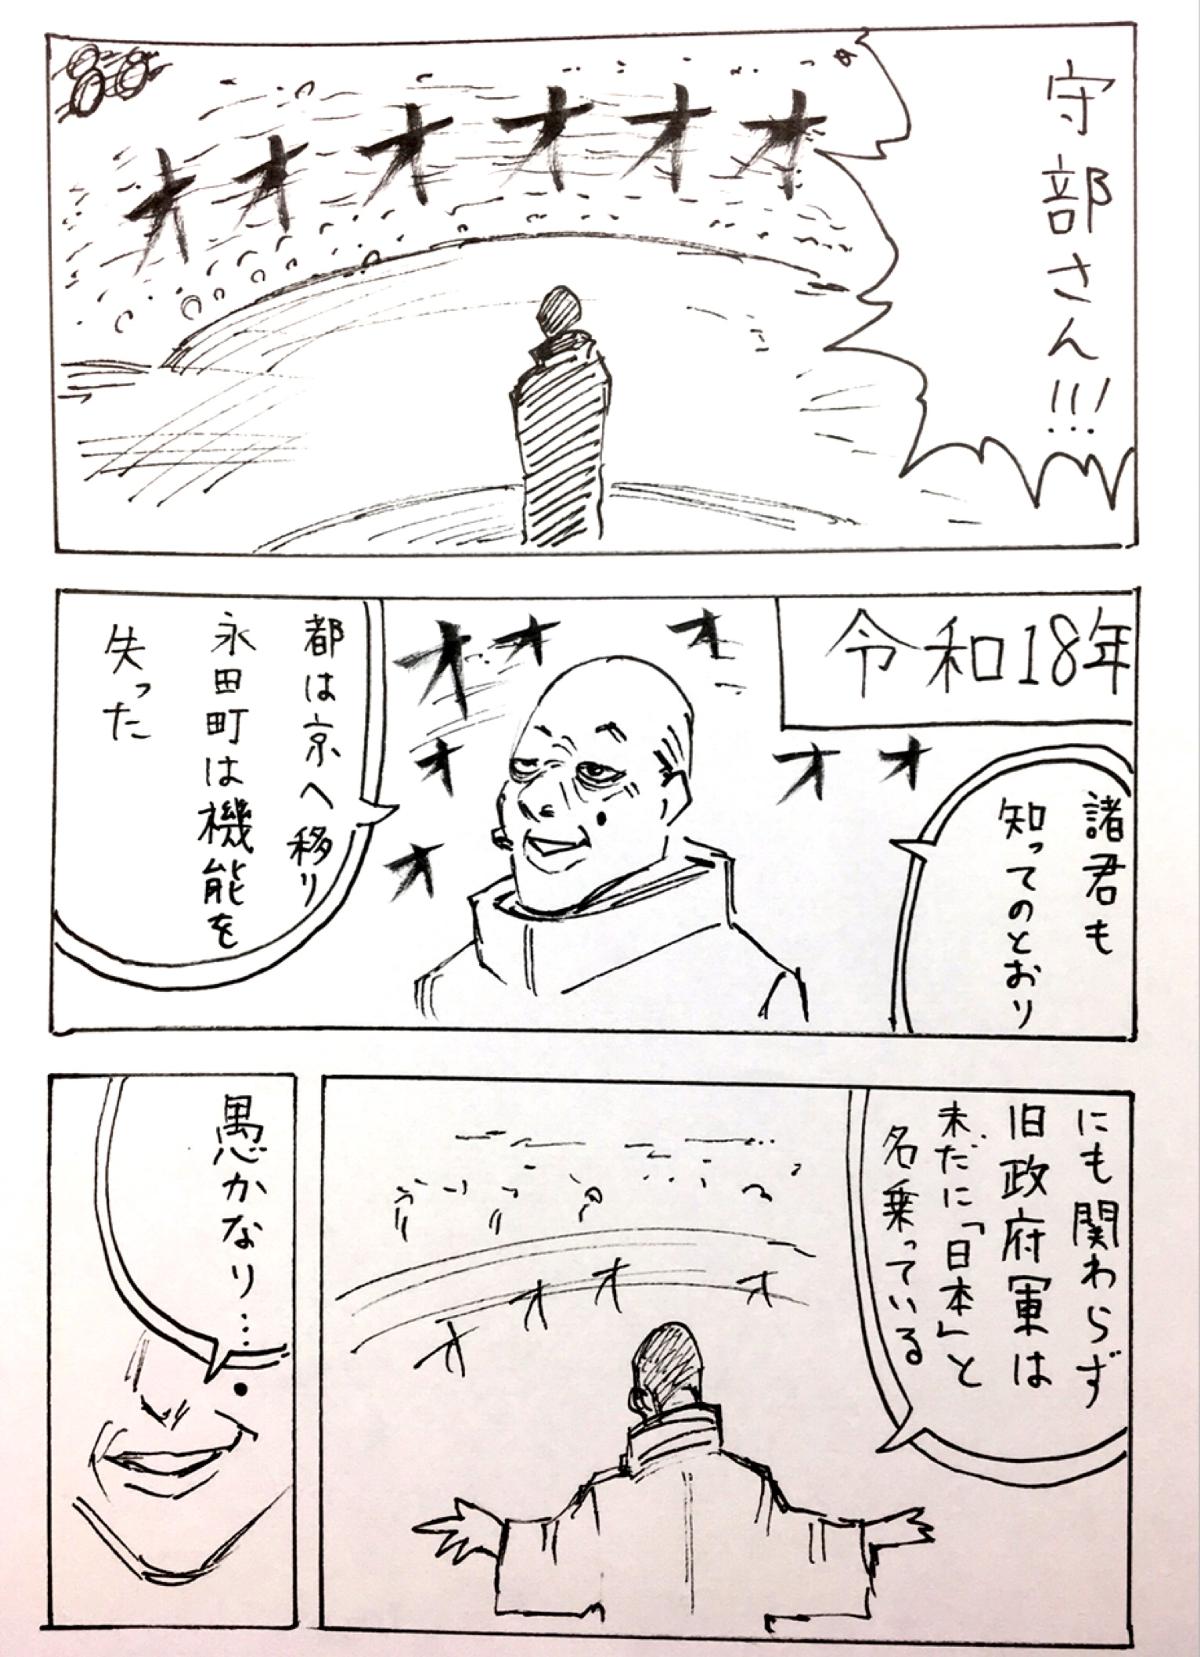 守部さん!!!
オオオオオオ
令和18年
諸君も
知ってのとおり
オオ
オオオ
オ
オ
都は京へ移り
永田町は機能を
失った
にも関わらず
旧政府軍は
未だに「日本」と
名乗っている
オオオオ
愚かなり…